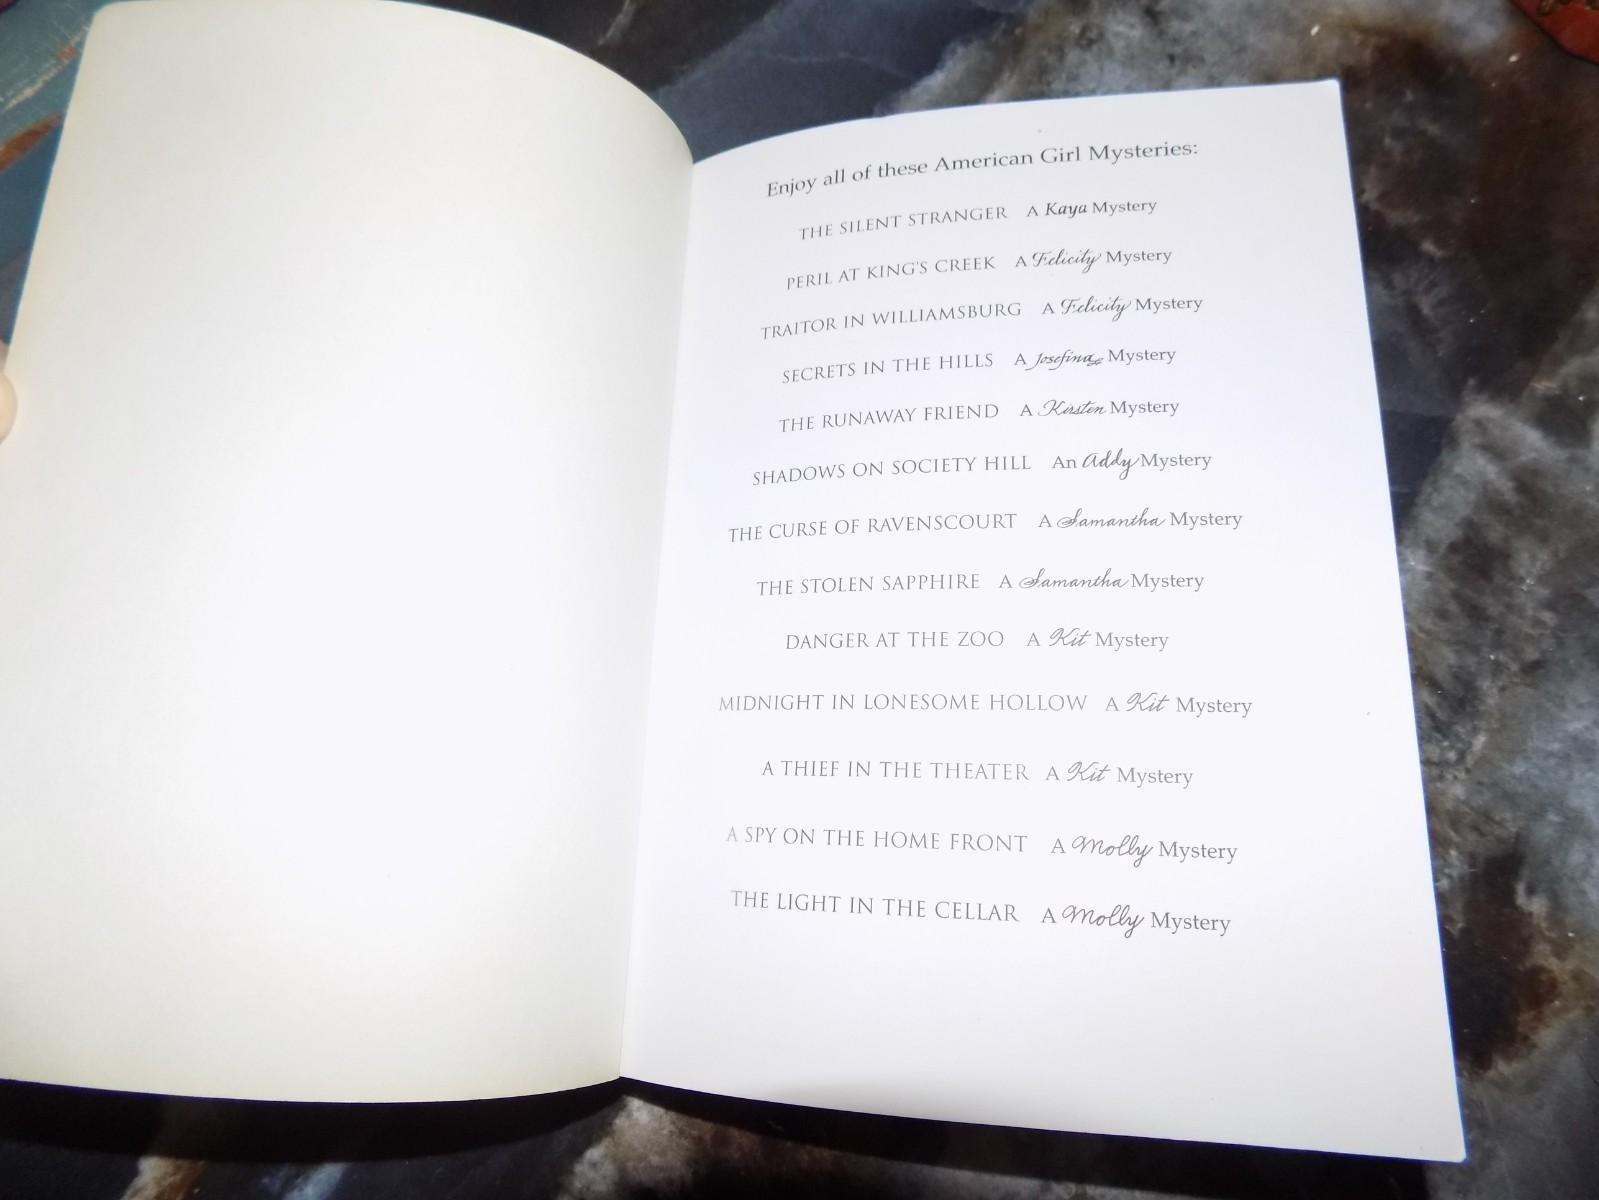 Enjoy all of these American Girl Mysteries:
THE SILENT STRANGER A Kaya Mystery
PERIL AT KING'S CREEK A Felicity Mystery
TRAITOR IN WILLIAMSBURG A Felicity Mystery
SECRETS IN THE HILLS A Josefina Mystery
THE RUNAWAY FRIEND A Kirsten Mystery
SHADOWS ON SOCIETY HILL An Addy Mystery
THE CURSE OF RAVENSCOURT A Samantha Mystery
THE STOLEN SAPPHIRE A Samantha Mystery
DANGER AT THE ZOO A Kit Mystery
MIDNIGHT IN LONESOME HOLLOW A Kit Mystery
A THIEF IN THE THEATER A Kit Mystery
A SPY ON THE HOME FRONT A Molly Mystery
THE LIGHT IN THE CELLAR A Molly Mystery